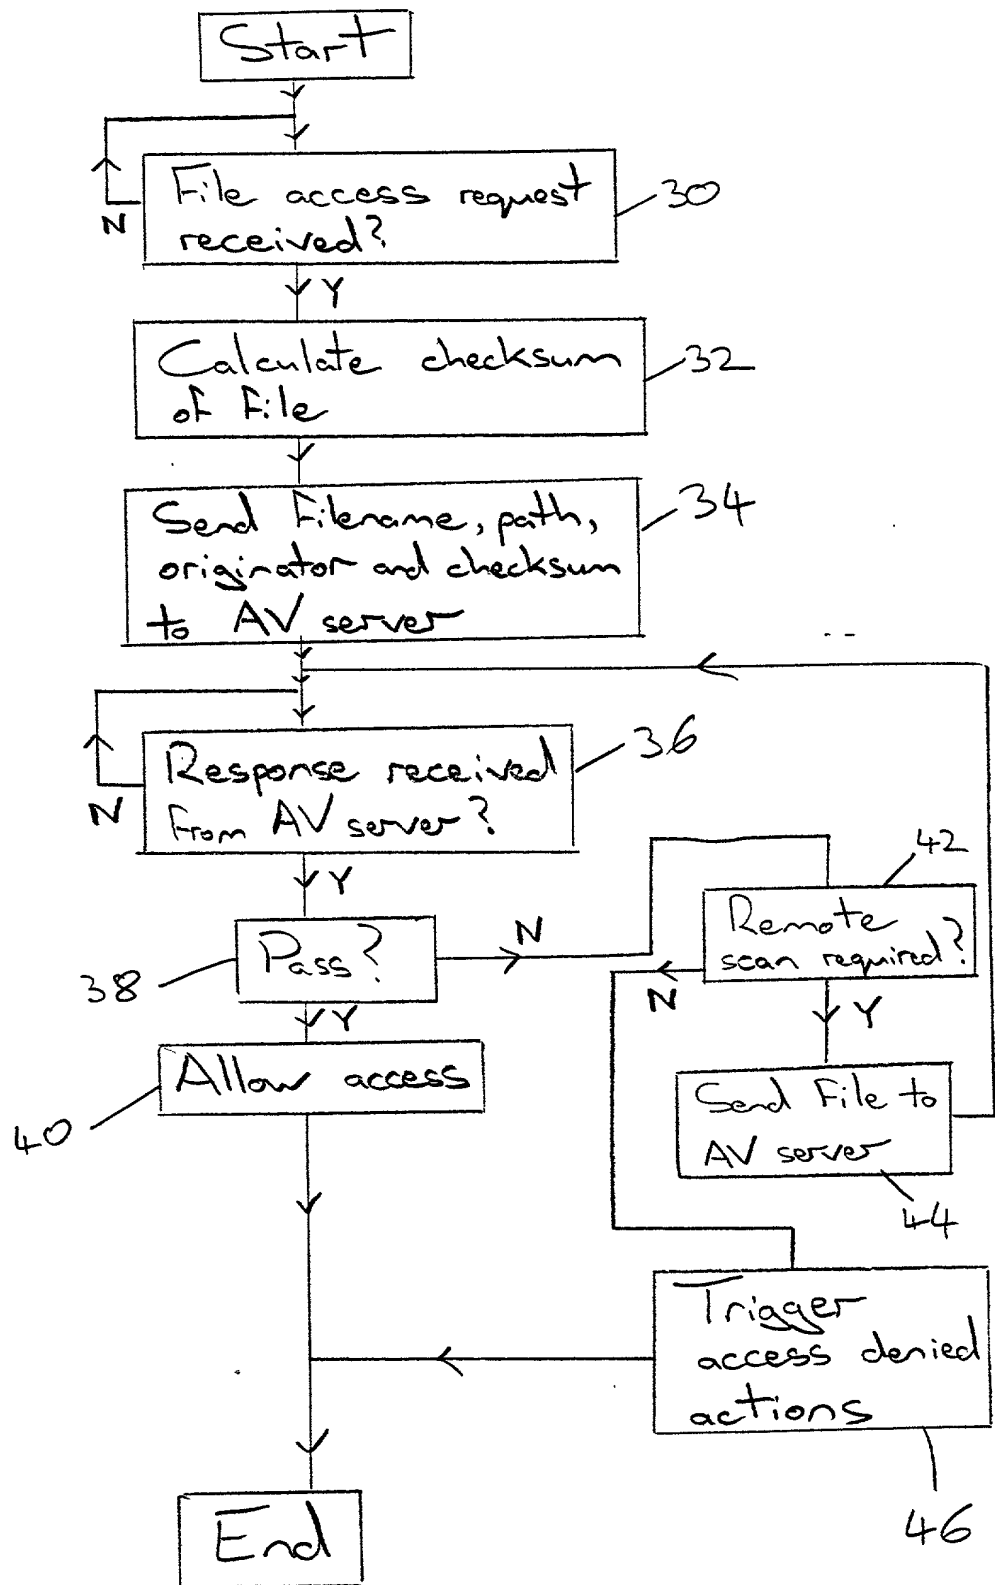 Start
File access request
received?
30
N
Y
Calculate checksum
of file
32
Send Filename, path,
originator and checksum
to AV server
34
Response received
from AV server?
36
N
Y
Pass?
38
N
Y
Allow access
40
Remote
scan required?
42
N
Y
Send File to
AV server
44
Trigger
access denied
actions
46
End